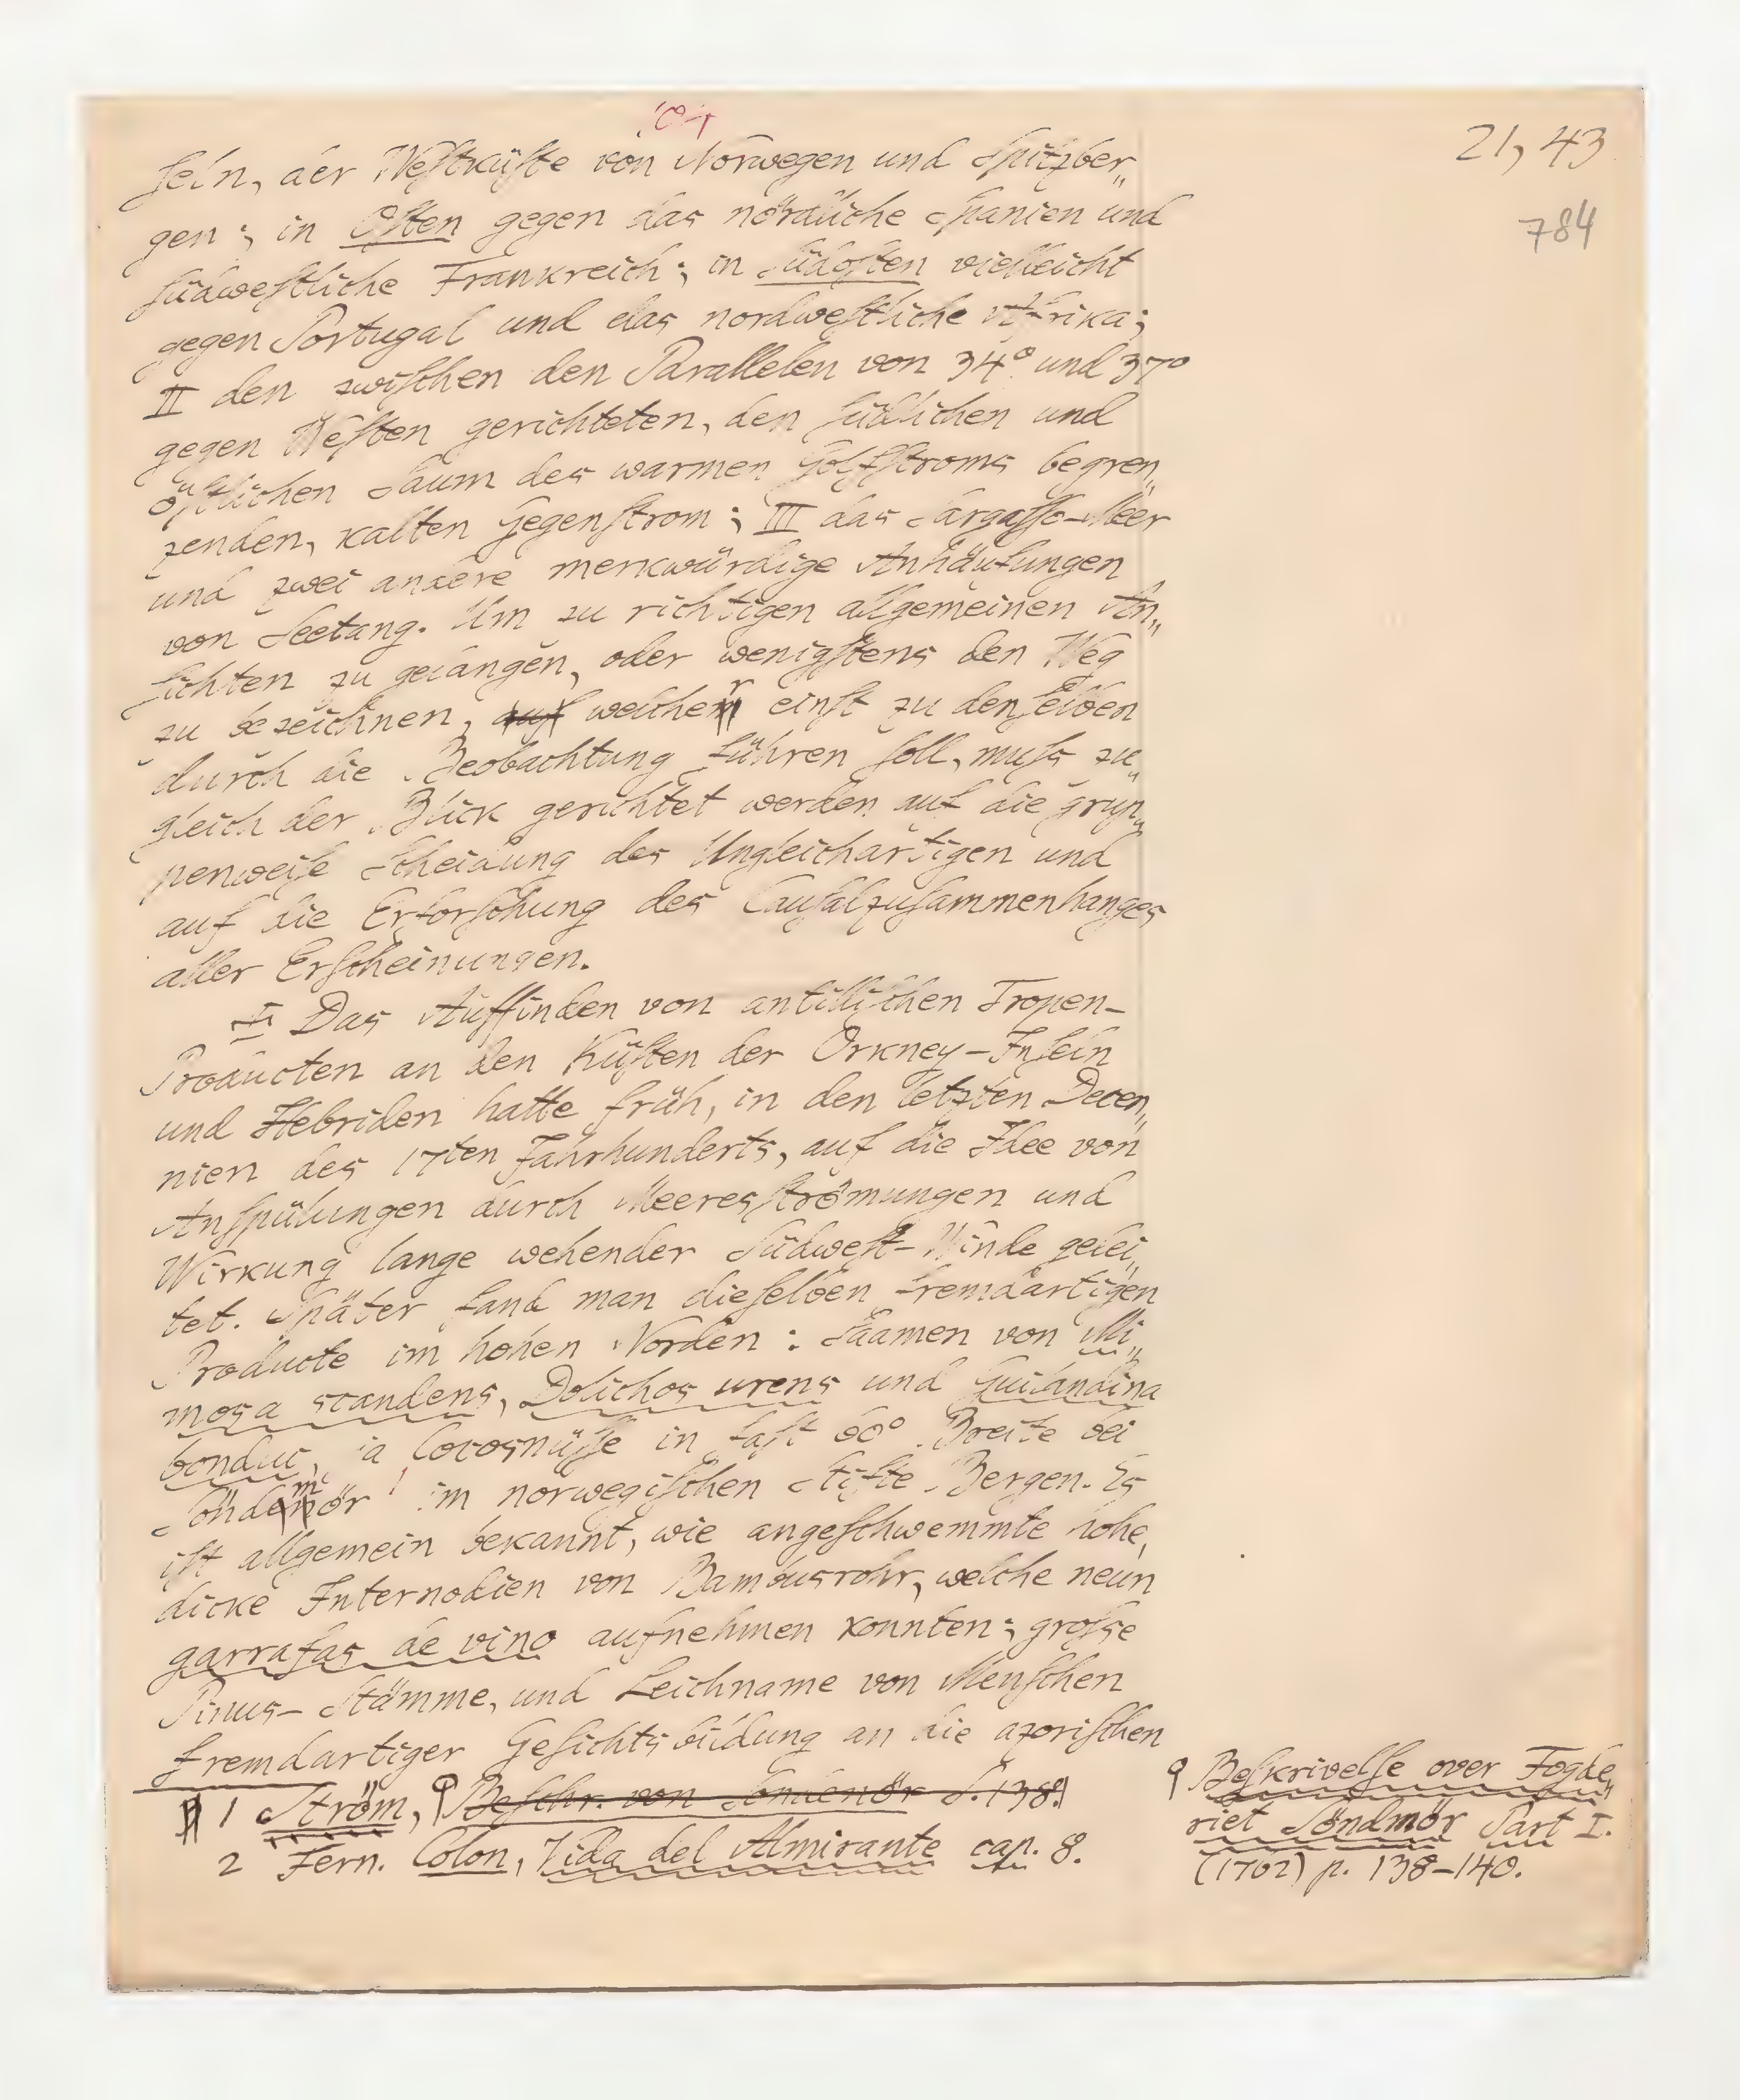 21, 43
784
seln, der Westküste von Norwegen und Spitzber„
gen; in Osten gegen das nördliche Spanien und
südwestliche Frankreich; in Südosten vielleicht
gegen Portugal und das nordwestliche Afrika;
II den zwischen den Parallelen von 34° und 37°
gegen Westen gerichteten, den südlichen und
östlichen Saum des warmen Golfstroms begren„
zenden, kalten Gegenstrom; III das Sargasso-Meer
und zwei andere merkwürdige Anhäufungen
von Seetang. Um zu richtigen allgemeinen An„
sichten zu gelangen, oder wenigstens den Weg
zu bezeichnen, auf welcher einst zu denselben
durch die Beobachtung führen soll, muß zu„
gleich der Blick gerichtet werden auf die grup„
penweise Scheidung des Ungleichartigen und
auf die Erforschung des Causalzusammenhanges
aller Erscheinungen.
I. Das Auffinden von antillischen Tropen-
Producten an den Küsten der Orkney-Inseln
und Hebriden hatte früh, in den letzten Decen„
nien des 17ten Jahrhunderts, auf die Idee von
Anspülungen durch Meeresströmungen und
Wirkung lange wehender Südwest-Winde gelei„
tet. Später fand man dieselben fremdartigen
Producte im hohen Norden: Saamen von Mi„
mosa scandens, Dolichos urens und Guilandina
bonduc, ja Cocosnüsse in fast 60° Breite bei
Söndmör 1 im norwegischen Stifte Bergen. Es
ist allgemein bekannt, wie angeschwemmte hohe,
dicke Internodien von Bambusrohr, welche neun
garrafas de vino aufnehmen konnten; große
Pinus-Stämme, und Leichname von Menschen
fremdartiger Gesichtsbildung an die azorischen
1 Ström, Beschr. von Sondenör S. 138.
2 Fern. Colon, Vida del Almirante cap. 8.
Beskrivelse over Fogde„
riet Söndmör Part I.
(1762) p. 138-140.